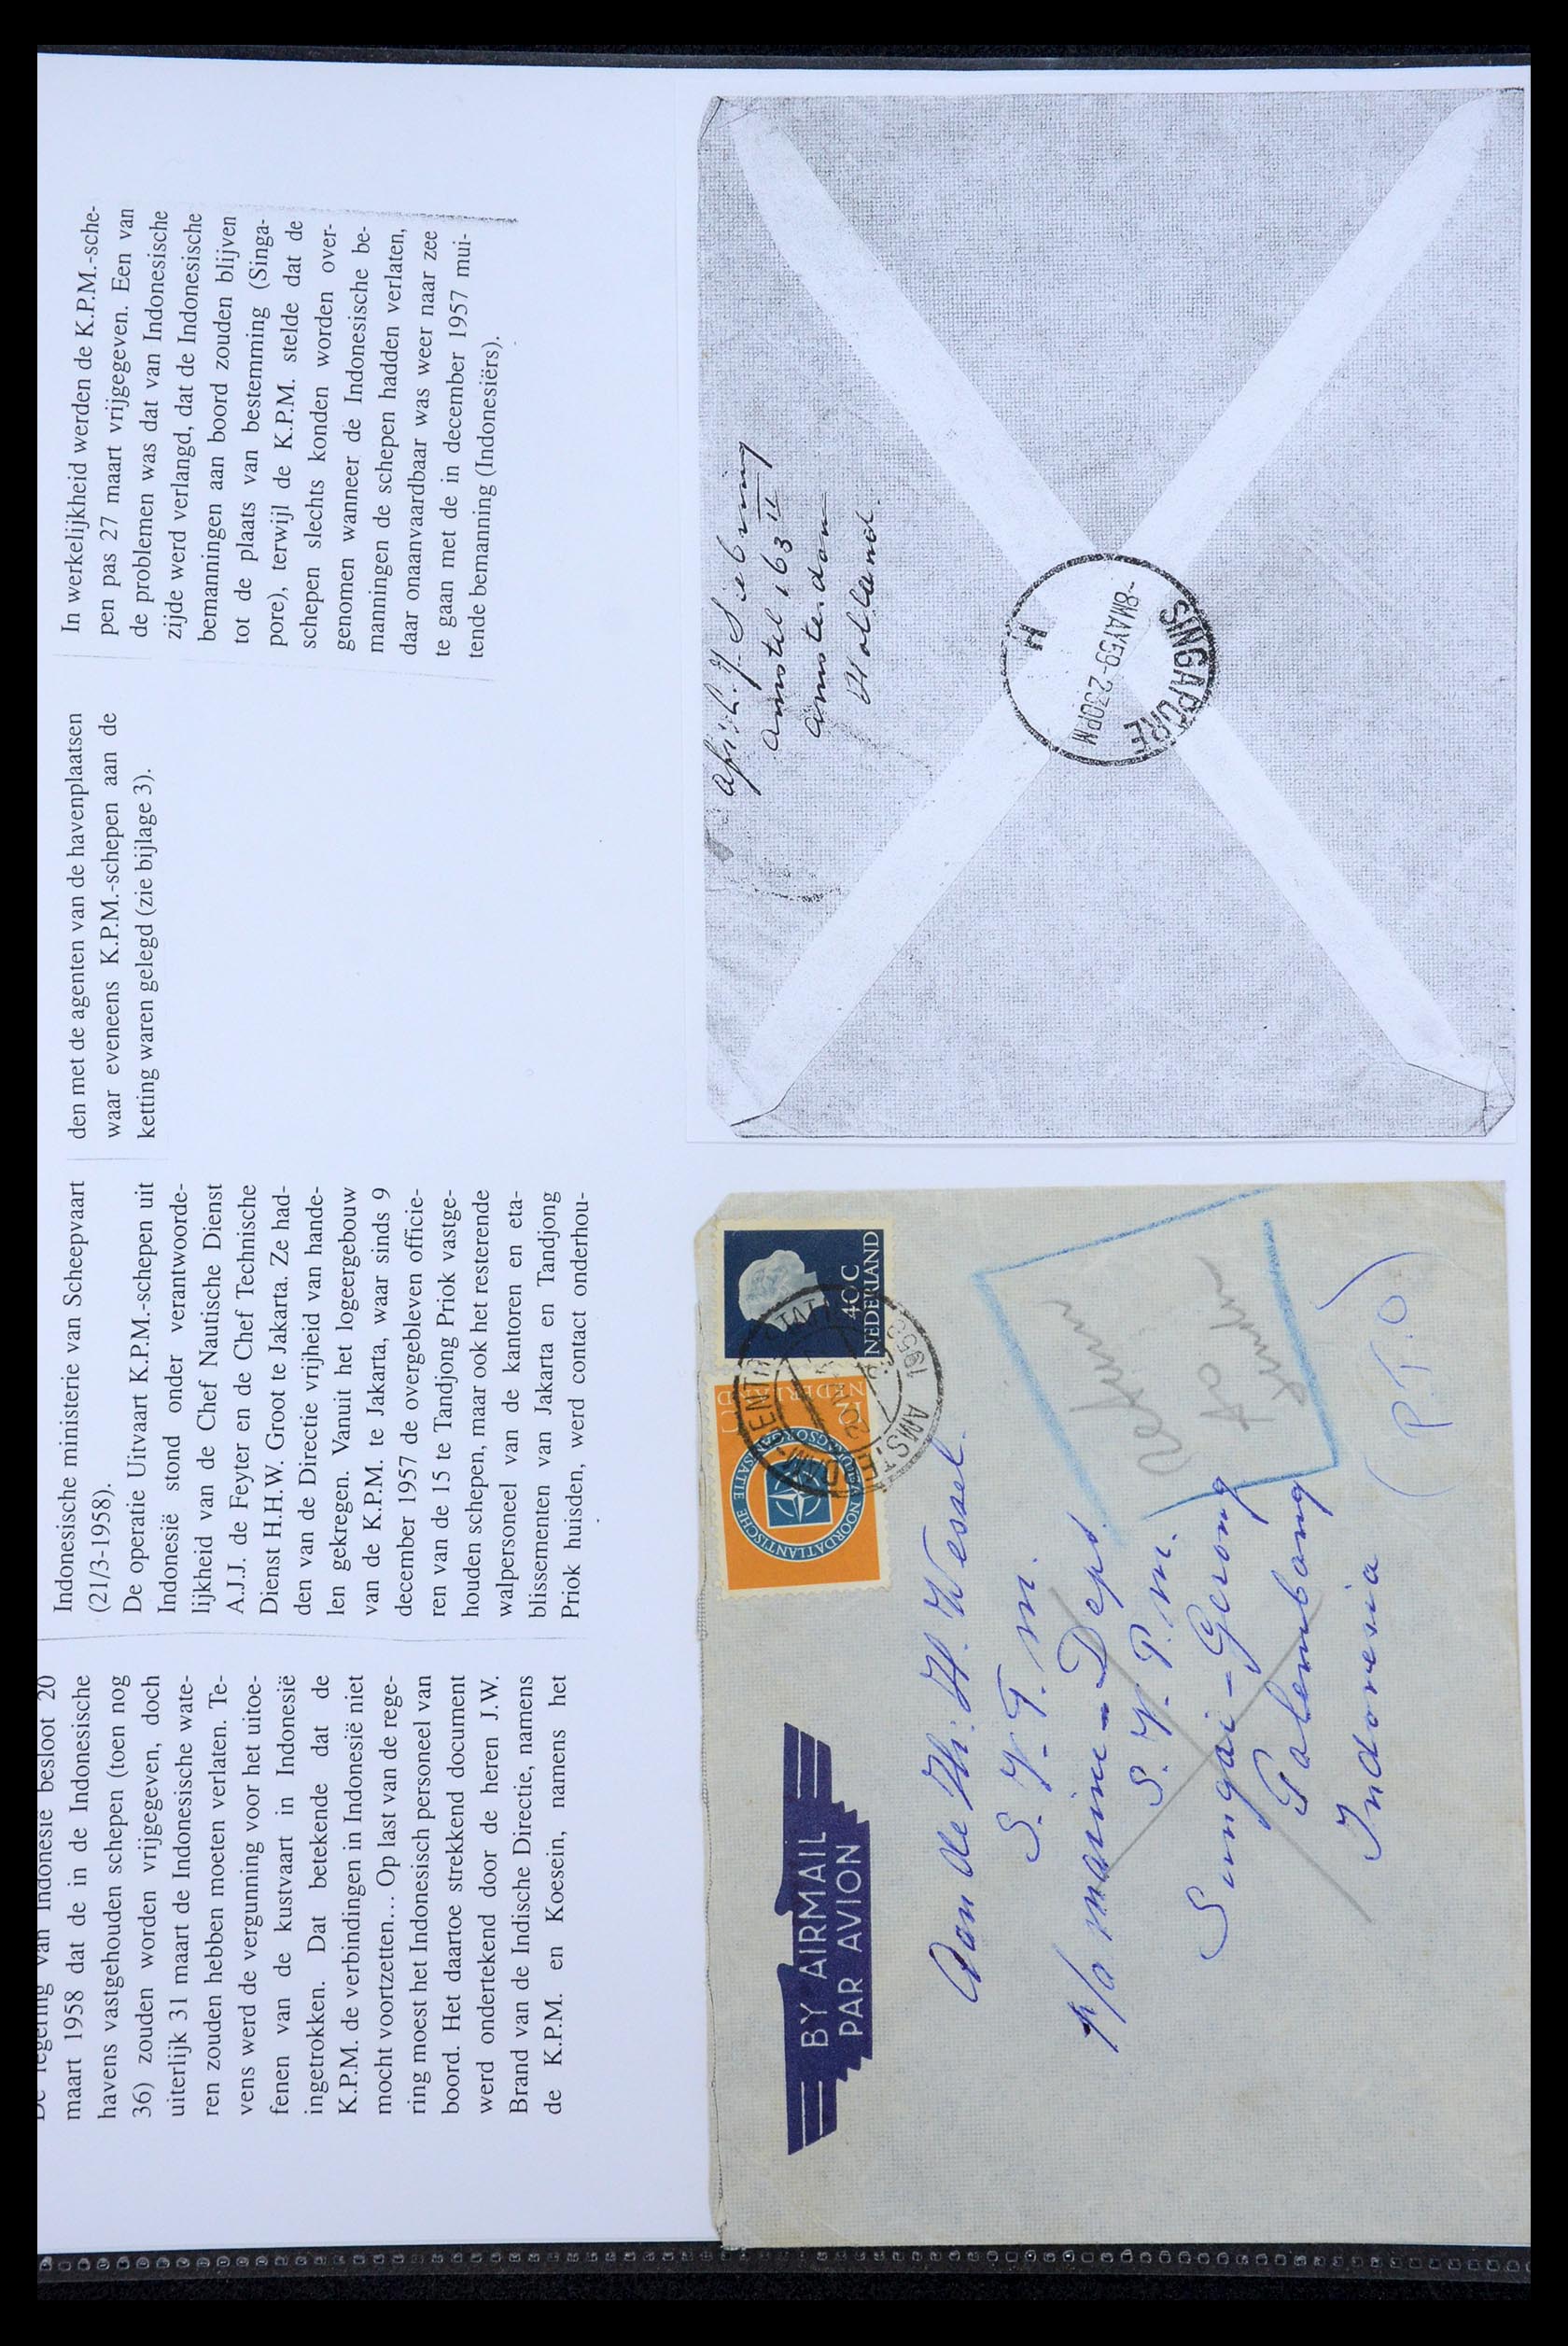 De regering van Indonesië besloot 20
maart 1958 dat de in de Indonesische
havens vastgehouden schepen (toen nog
36) zouden worden vrijgegeven, doch
uiterlijk 31 maart de Indonesische wate-
ren zouden hebben moeten verlaten. Te-
vens werd de vergunning voor het uitoe-
fenen van de kustvaart in Indonesië
ingetrokken. Dat betekende dat de
K.P.M. de verbindingen in Indonesië niet
mocht voortzetten... Op last van de rege-
ring moest het Indonesisch personeel van
boord. Het daartoe strekkend document
werd ondertekend door de heren J.W.
Brand van de Indische Directie, namens
de K.P.M. en Koesein, namens het
Indonesische ministerie van Scheepvaart
(21/3-1958).
De operatie Uitvaart K.P.M.-schepen uit
Indonesië stond onder verantwoorde-
lijkheid van de Chef Nautische Dienst
A.J.J. de Feyter en de Chef Technische
Dienst H.H.W. Groot te Jakarta. Ze had-
den van de Directie vrijheid van hande-
len gekregen. Vanuit het logeergebouw
van de K.P.M. te Jakarta, waar sinds 9
december 1957 de overgebleven officie-
ren van de 15 te Tandjong Priok vastge-
houden schepen, maar ook het resterende
walpersoneel van de kantoren en eta-
blissementen van Jakarta en Tandjong
Priok huisden, werd contact onderhou-
den met de agenten van de havenplaatsen
waar eveneens K.P.M.-schepen aan de
ketting waren gelegd (zie bijlage 3).
In werkelijkheid werden de K.P.M.-sche-
pen pas 27 maart vrijgegeven. Een van
de problemen was dat van Indonesische
zijde werd verlangd, dat de Indonesische
bemanningen aan boord zouden blijven
tot de plaats van bestemming (Singa-
pore), terwijl de K.P.M. stelde dat de
schepen slechts konden worden over-
genomen wanneer de Indonesische be-
manningen de schepen hadden verlaten,
daar onaanvaardbaar was weer naar zee
te gaan met de in december 1957 mui-
tende bemanning (Indonesiërs).
BY AIRMAIL
PAR AVION
NOORDATLANTISCHE VERDRAGSORGANISATIE
NEDERLAND
12 C
40 C
NEDERLAND
AMSTERDAM
Aan de Hr: H. Wessel.
S. V. P. M.
p/a marine-Dept.
S. V. P. M.
Sungai-Gerong
Palembang
Indonesia
Return
to
sender
(P.T.O)
Amstel 163 II
Amsterdam
Holland.
SINGAPORE
-8MAY59-230PM
H